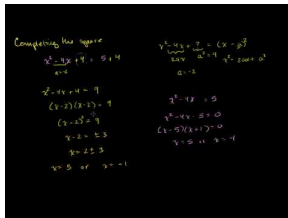 Completing the square
x² - 4x + 4 = 5 + 4
a = -2
x² - 4x + 4 = 9
(x - 2)(x - 2) = 9
(x - 2)² = 9
x - 2 = ± 3
x = 2 ± 3
x = 5 or x = -1
x² - 4x + ? = (x - a)²
2ax a² = 4 x² - 2ax + a²
a = -2
x² - 4x = 5
x² - 4x - 5 = 0
(x - 5)(x + 1) = 0